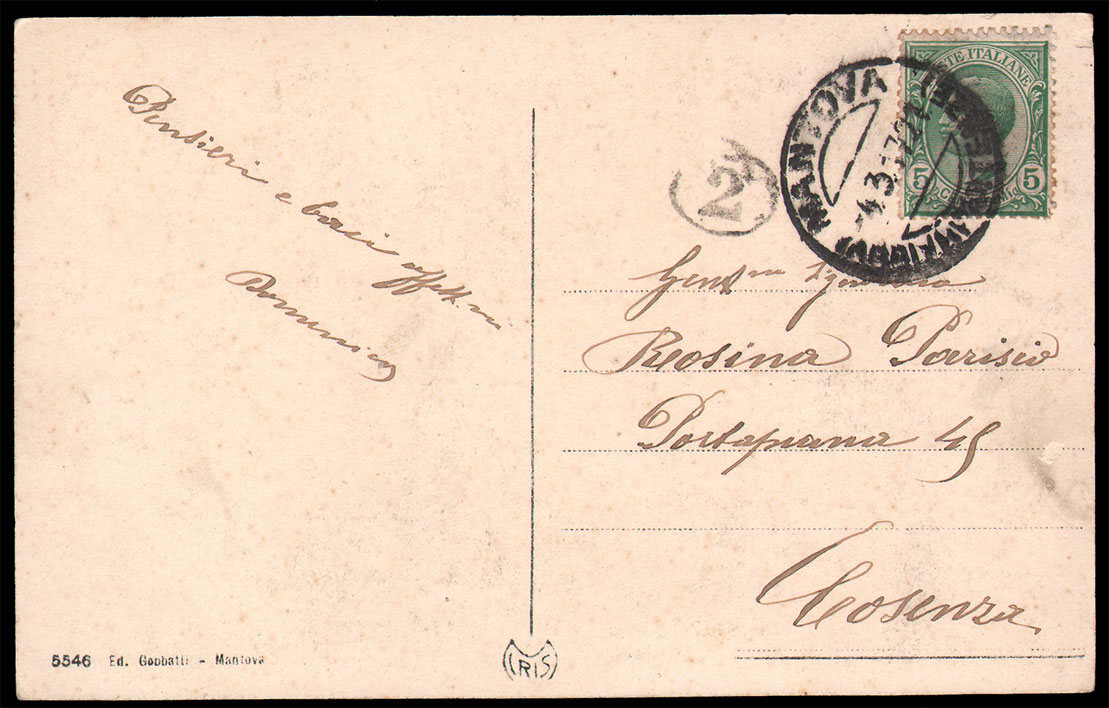 Pensieri e baci affett.mi
Domenico
POSTE ITALIANE
5 5
MANTOVA
4.3.17 22
2
Gent.ma Signorina
Rosina Parisio
Portapiana 45
Cosenza
5546 Ed. Gobbatti - Mantova
IRIS